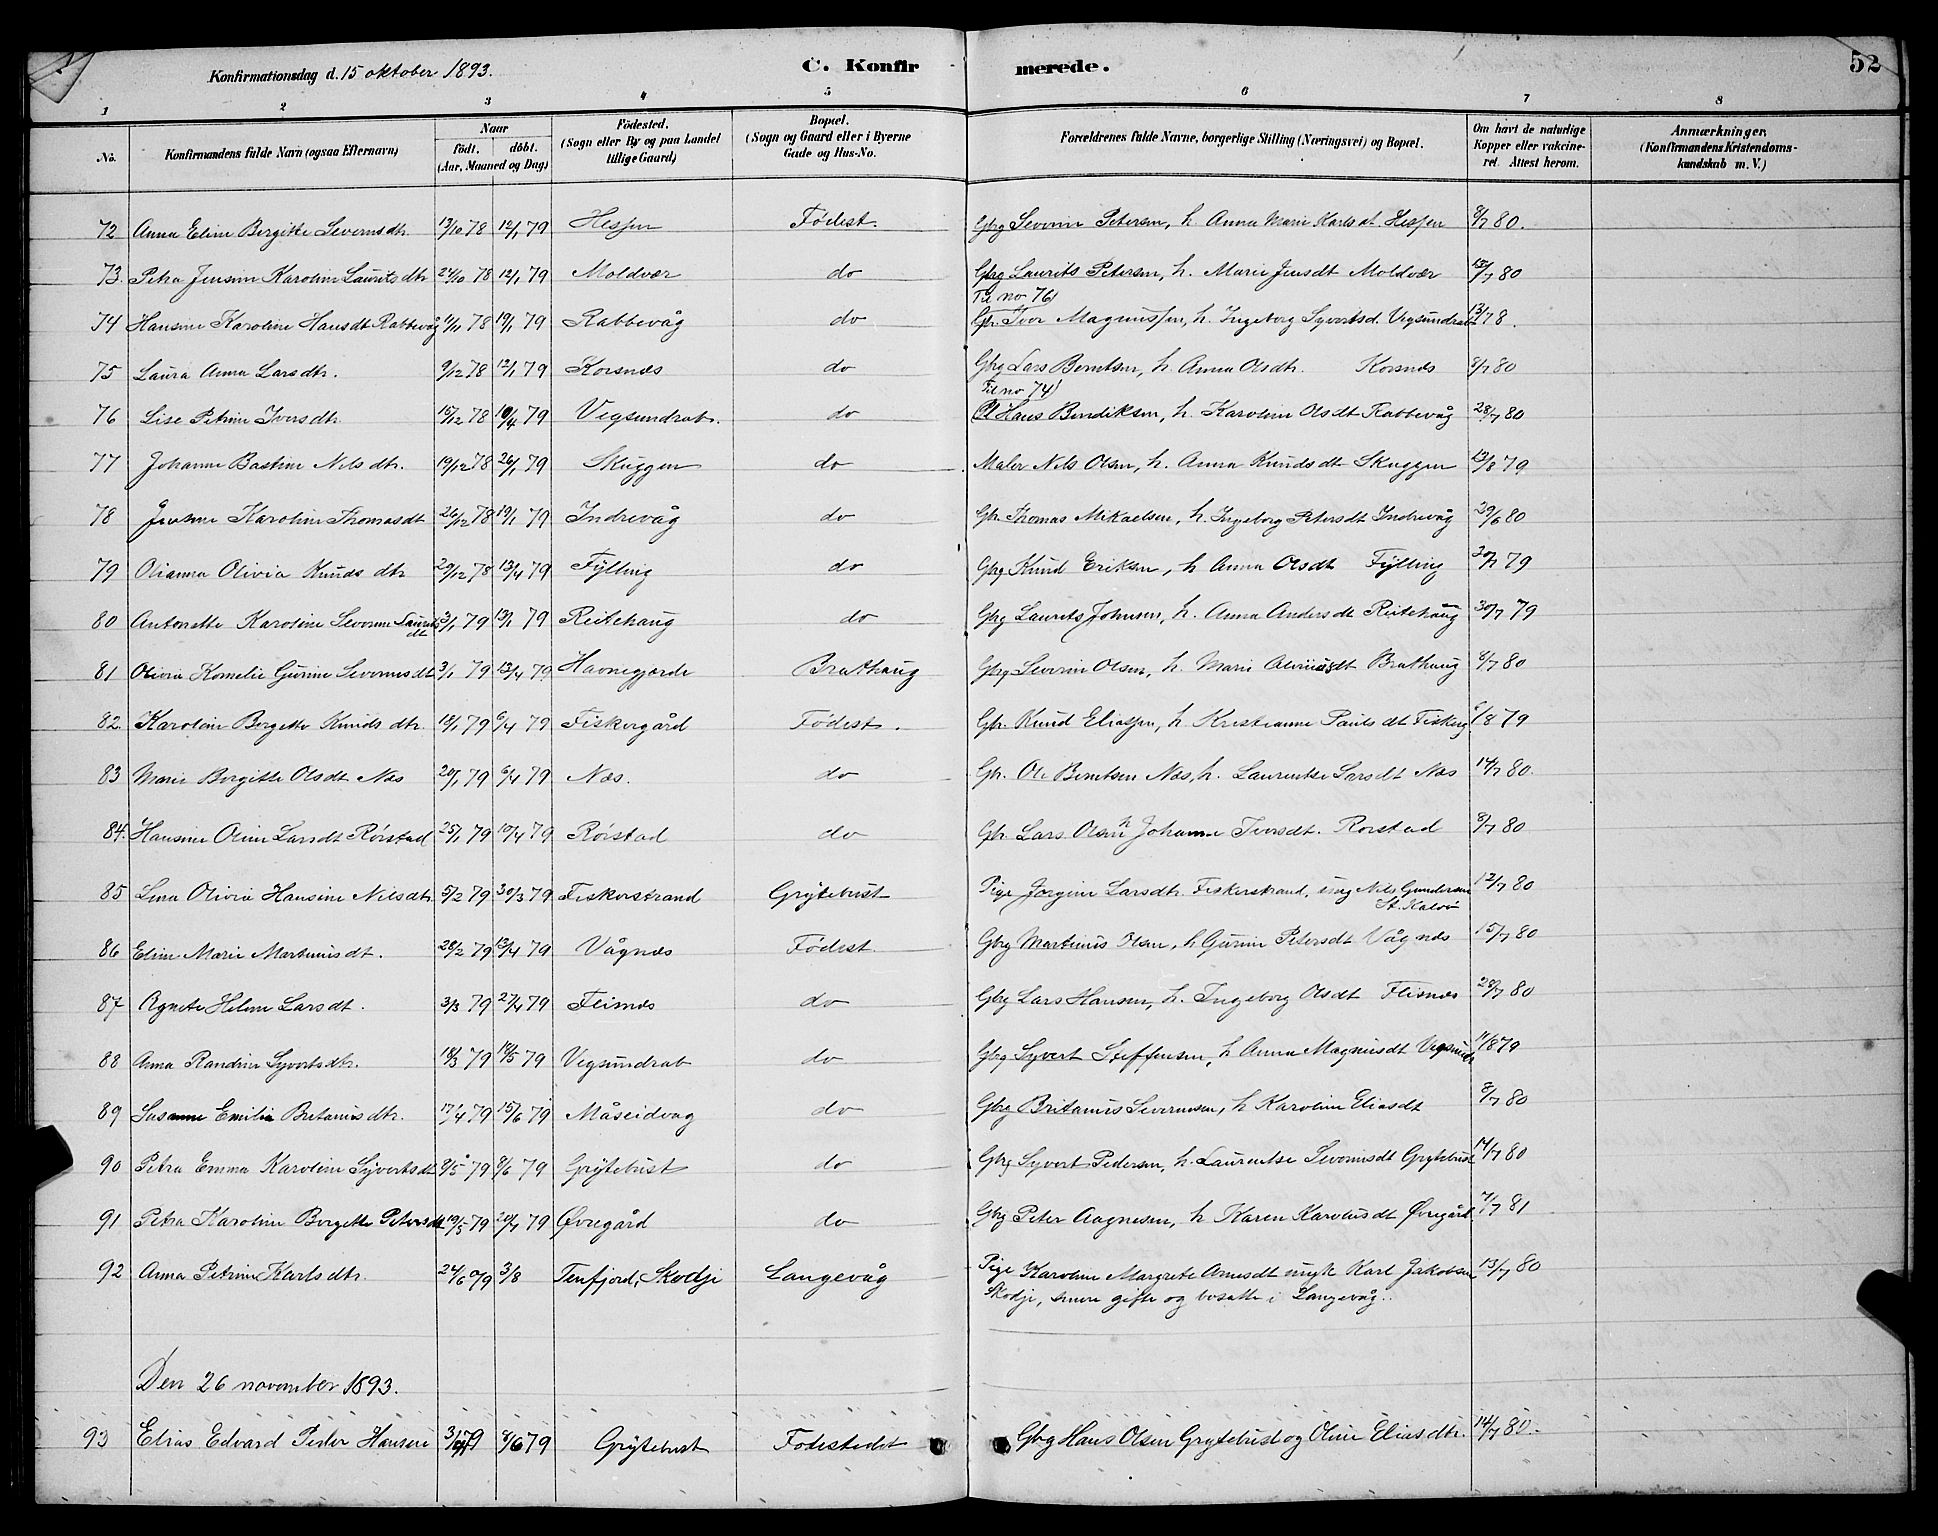 Konfirmationsdag d. 15 oktober 1893.
C. Konfirmerede.
52
1 2 3 4 5 6 7 8
No. Konfirmandens fulde Navn (ogsaa Efternavn) Naar født. døbt. (Aar, Maaned og Dag) Fødested. (Sogn eller By og paa Landet tillige Gaard) Bopæl. (Sogn og Gaard eller i Byerne Gade og Hus-No. Forældrenes fulde Navne, borgerlige Stilling (Næringsvei) og Bopæl. Om havt de naturlige Kopper eller vakcineret. Attest herom. Anmærkninger. (Konfirmandens Kristendomskundskab m. V.)
72 Anna Eline Bergitte Severinsdtr. 13/10 78 12/1 79 Hessen Fødest. Gbrg Severin Petersen, h. Anna Marie Karlsdt Hessen 8/7 80.
73. Petra Jensine Karoline Lauritsdtr 24/10 78 12/1 79 Moldvær do Gbrg Laurits Petersen, h. Marie Jensdt Moldvær 15/7 80
Til no 76)
74 Hansine Karoline Hansdt Rabbevåg 11/11 78 19/1 79 Rabbevåg do Gbr. Iver Magnussen, h. Ingeborg Syvertsd. Vegsundrab 13/7 78.
75 Laura Anna Larsdtr. 9/12 78 12/1 79 Korsnes do Gbrg Lars Berntsen, h. Anna Olsdtr. Korsnes 8/7 80
Til no 74)
76 Lise Petrine Iversdtr. 15/12 78 10/4 79 Vegsundrab. do Pl Hans Bendiksen, h. Karoline Olsdt Rabbevåg 28/7 80
77 Johanne Bastine Nilsdtr. 19/12 78 26/1 79 Skuggen do Maler Nils Olsen, h. Anna Knudsdt Skuggen 13/8 79
78 Jensine Karoline Thomasdt 26/12 78 19/1 79 Indrevåg do Gbr. Thomas Mikaelsen, h. Ingeborg Petersdt Indrevåg 29/6 80
79 Olianna Olivia Knudsdtr 29/12 78 13/4 79 Fylling do Gbrg Knud Eriksen, h Anna Olsdt Fylling 30/7 79
80 Antonette Karoline Severine Lauritsdt 3/1 79 13/1 79 Reitehaug do Gbrg Laurits Johnsen, h. Anna Andersdt Reitehaug 30/7 79
81 Olivia Kornelie Gurine Severinsdt 3/1 79 13/4 79 Havnegjerde Brathaug Gbrg Severin Olsen, h. Marie Brathaug 8/7 80
82. Karoline Bergitte Knudsdtr. 18/1 79 6/4 79 Fiskergård Fødest. Gbr. Knud Eliassen, h. Kristianne Paulsdt Fiskerg. 6/8 79
83 Marie Bergitte Olsdt Næs 20/1 79 6/4 79 Næs. do Gbr. Ole Berntsen Næs, h. Laurentse Larsdt Næs 14/7 80.
84. Hansine Oline Larsdt Rörstad 25/1 79 10/4 79 Rörstad do Gbr. Lars Olsen h Johanne Iversdt. Rorstad 8/7 80
85 Lina Olivia Hansine Nilsdtr. 5/2 79 30/3 79 Fiskerstrand Grytebust Pige Jorgine Larsdtr. Fiskerstrand, ung Nils Gundersen 12/7 80
St. Kalvö
86 Eline Marie Martinusdt. 28/2 79 13/4 79 Vågnes Fødest. Gbrg Martinus Olsen, h Gurine Petersdt Vågnes 15/7 80
87 Agnete Helene Larsdt. 3/3 79 27/4 79 Fleisnes do Gbrg Lars Hansen, h. Ingeborg Olsdt Flisnes 28/7 80
88 Anna Randine Syvertsdtr. 18/3 79 18/5 79 Vegsundrab do Gbrg Syvert Steffensen, h Anna Magnusdt Vegsundr 11/8 79
89 Susanne Emilie Britanusdtr. 17/4 79 15/6 79 Måseidvag do Gbrg Britanus Severinsen, h Karoline Eliasdt 8/7 80
90 Petra Emma Karoline Syvertsdt 9/5 79 8/6 79 Grytebust do Gbrg Syvert Pedersen, h. Laurentse Severinsdt Grytebust 14/7 80
91 Petra Karoline Bergitte Petersdt 19/5 79 20/7 79 Øvregård do Gbrg Peter Aagnesen, h Karen Karolusdt Øvregård 7/7 81
92 Anna Petrine Karlsdtr. 24/6 79 3/8 Tenfjord, Skodje Langevåg Pige Karoline Margrete Arnesdt ungk Karl Jakobsen 13/7 80
Skodje, senere gifte og bosatte i Langevåg.
Den 26 november 1893.
93 Elias Edvard Peder Hansen 79 8/6 79 Grytebust Fodestedet Gbrg Hans Olsen Grytebust og Oline Eliasdtr. 14/7 80.